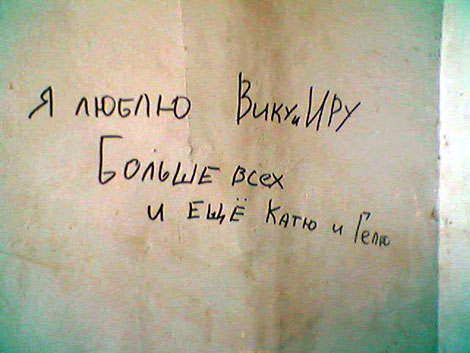 Я люблю Вику и Иру
Больше всех
и ещё Катю и Гелю